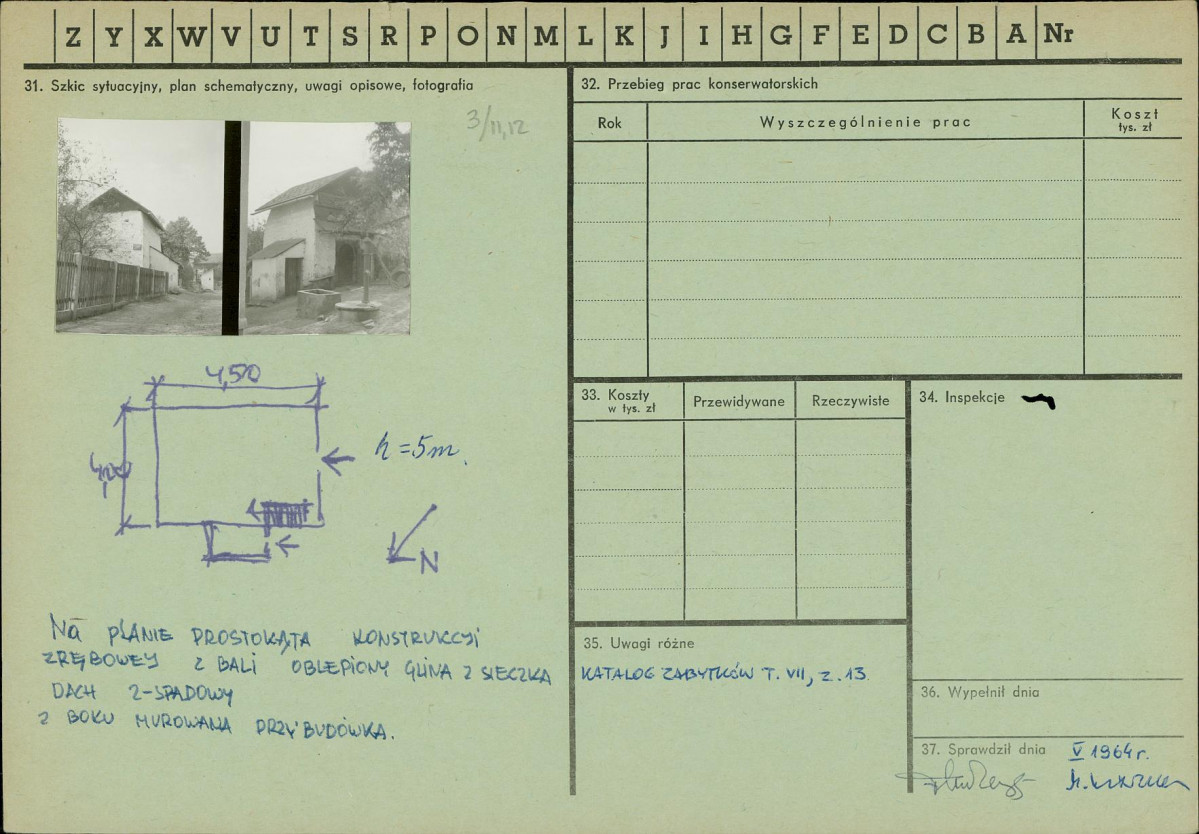 Z Y X W V U T S R P O N M L K J I H G F E D C B A Nr
31. Szkic sytuacyjny, plan schematyczny, uwagi opisowe, fotografia
3/11,12
4,50
h = 5m.
N
NA PLANIE PROSTOKĄTA KONSTRUKCYI
ZRĘBOWEY Z BALI OBLEPIONY GLINA Z SIECZKA
DACH 2-SPADOWY
Z BOKU MUROWANA PRZYBUDÓWKA.
32. Przebieg prac konserwatorskich
Rok Wyszczególnienie prac Koszt tys. zł
33. Koszty w tys. zł Przewidywane Rzeczywiste
34. Inspekcje
35. Uwagi różne
KATALOG ZABYTKÓW T. VII, Z. 13.
36. Wypełnił dnia
37. Sprawdził dnia V 1964 r.